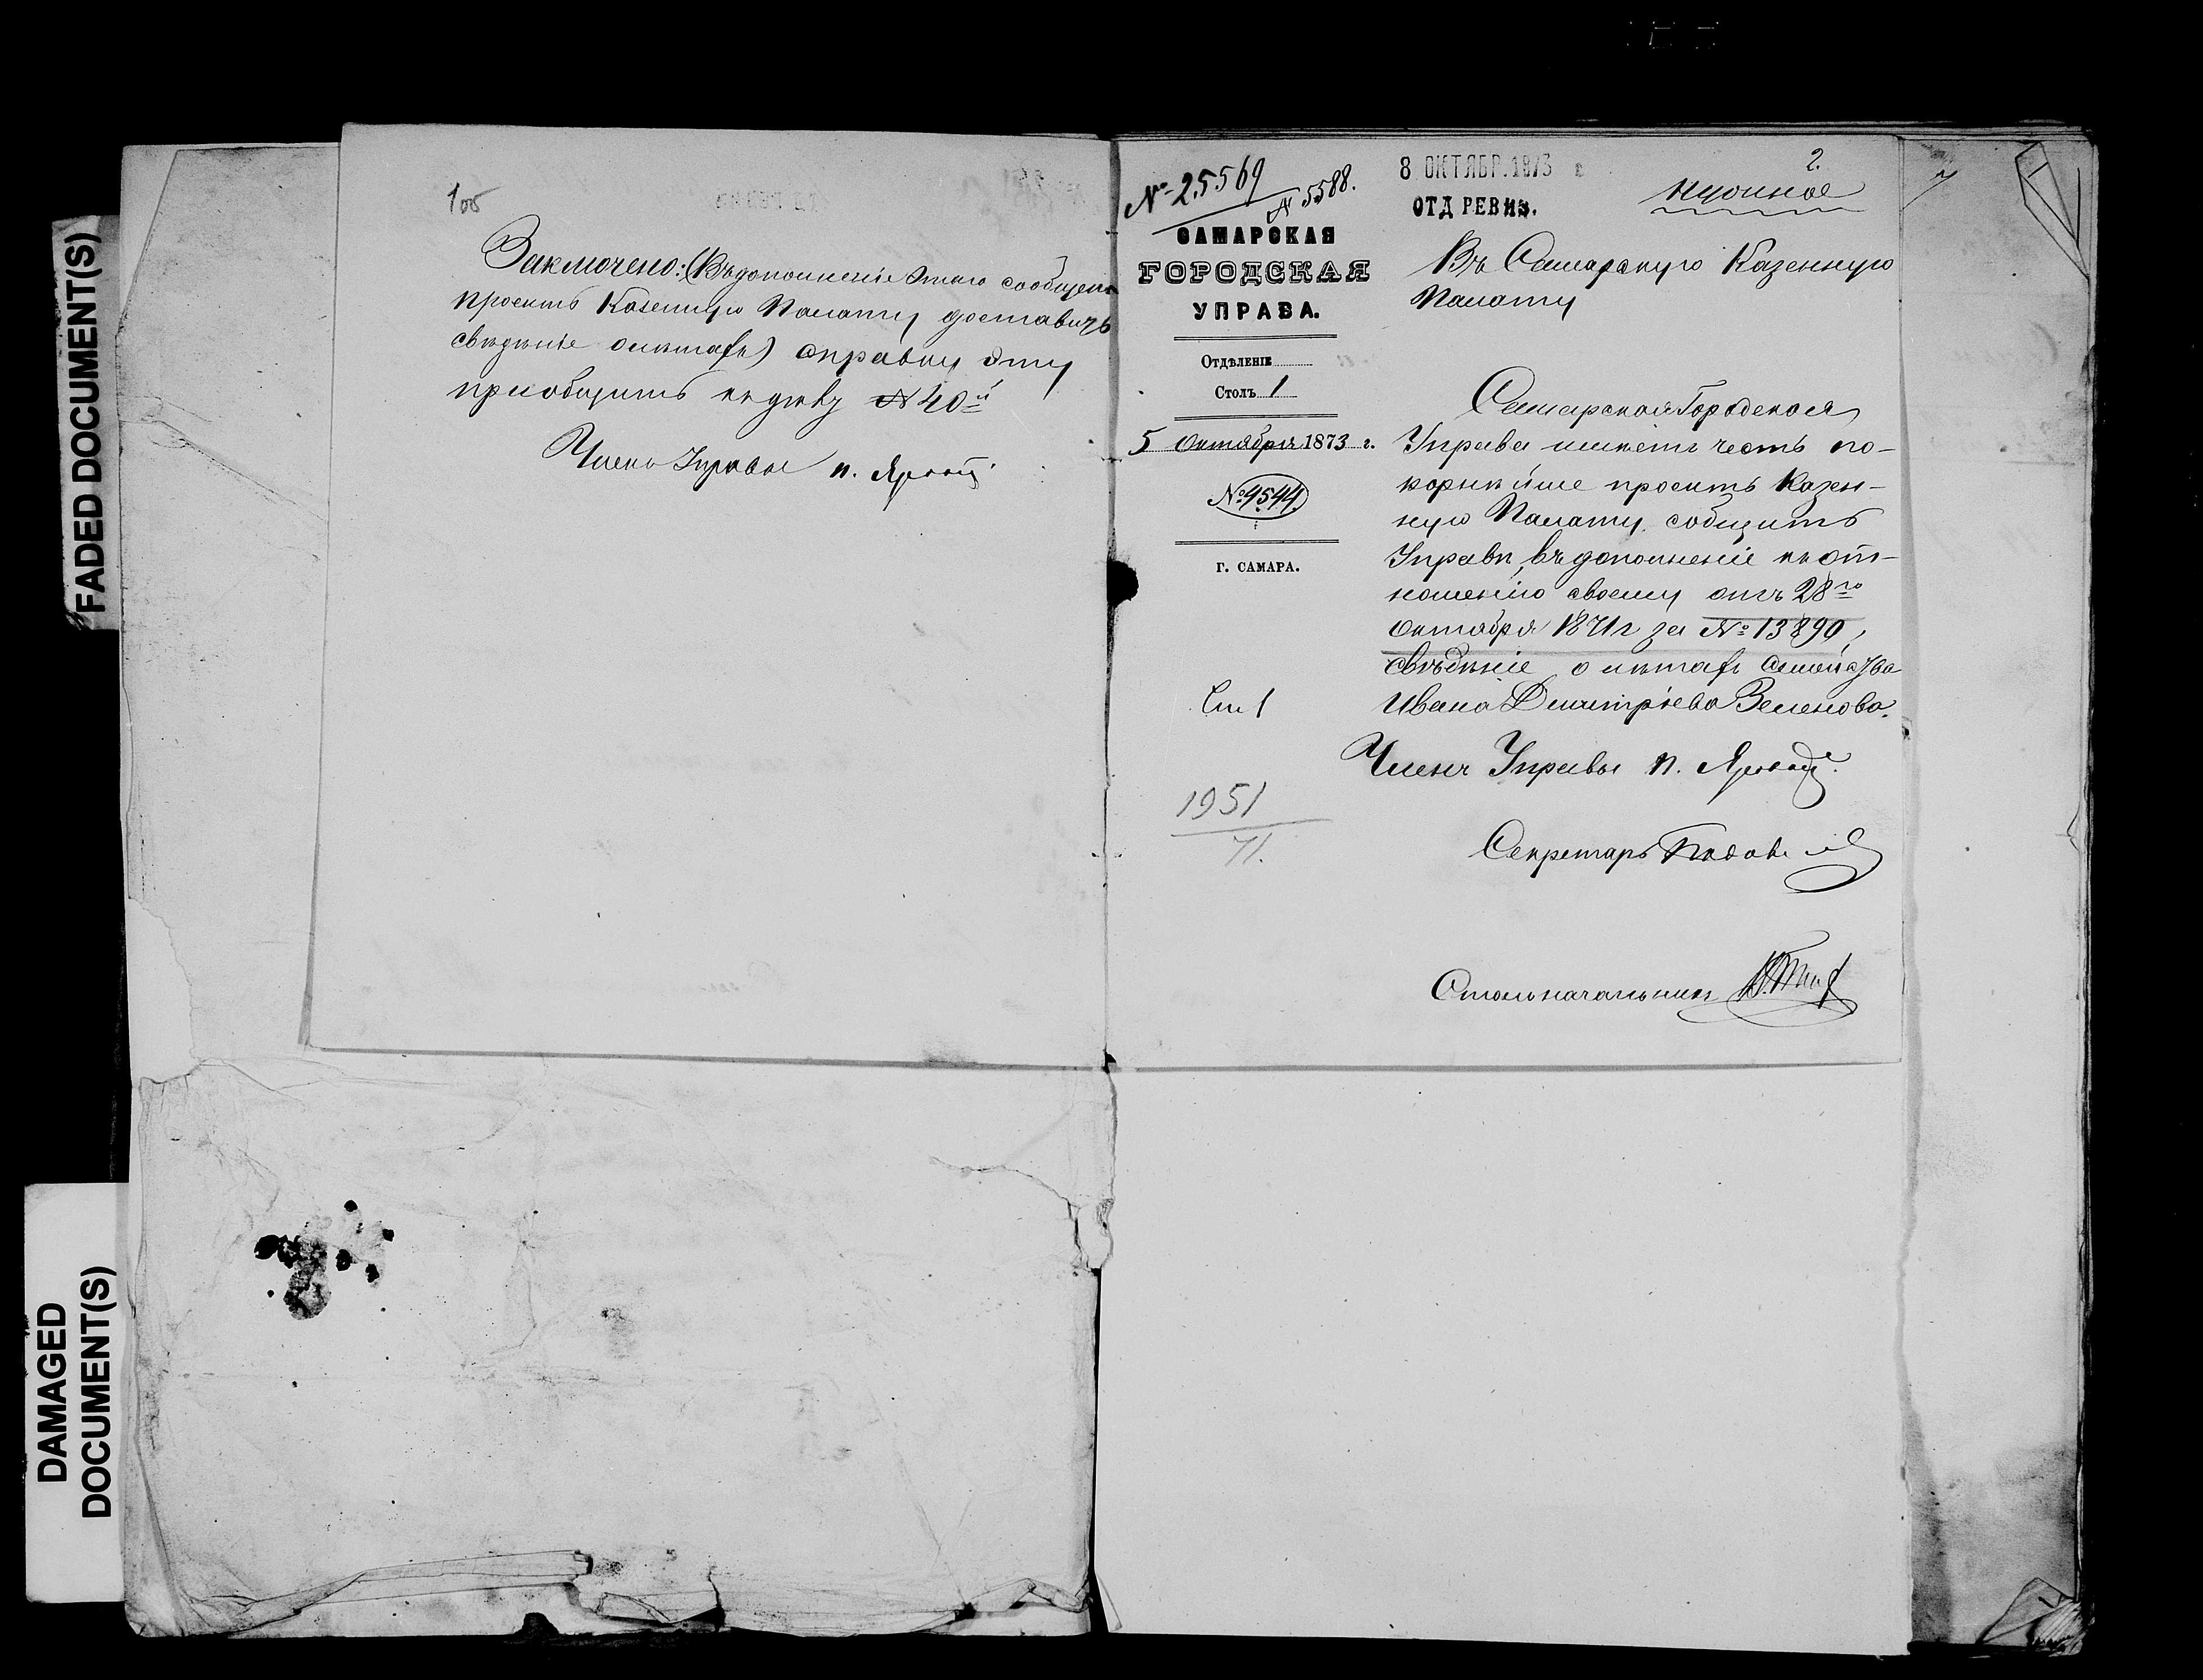 FADED DOCUMENT(S)
DAMAGED
DOCUMENT(S)
1об
Заключено: (Въ дополненіе этаго сообщенія
просить Казенную Палату доставить
свѣдѣніе о лѣтахъ) справку эту
пріобщить къ дѣлу № 40й
Членъ Управы П.
№ 25569
№ 5588.
САМАРСКАЯ
ГОРОДСКАЯ
УПРАВА.
Отдѣленіе
Столъ 1
5 Октября 1873 г.
№ 9544.
Г. САМАРА.
Ст 1
1951
71.
8 ОКТЯБР. 1873
ОТД РЕВИЗ.
2.
нужное
Въ Самарскую Казенную
Палату
Самарская Городская
Управа имѣетъ честь по-
корнѣйше просить Казен-
ную Палату сообщить
Управѣ, въ дополненіе къ от-
ношенію своему отъ 28го
Октября 1871 г за № 13890,
свѣдѣніе о лѣтахъ семейства
Ивана Дмитріева Зеленова.
Членъ Управы П.
Секретарь
Столоначальникъ